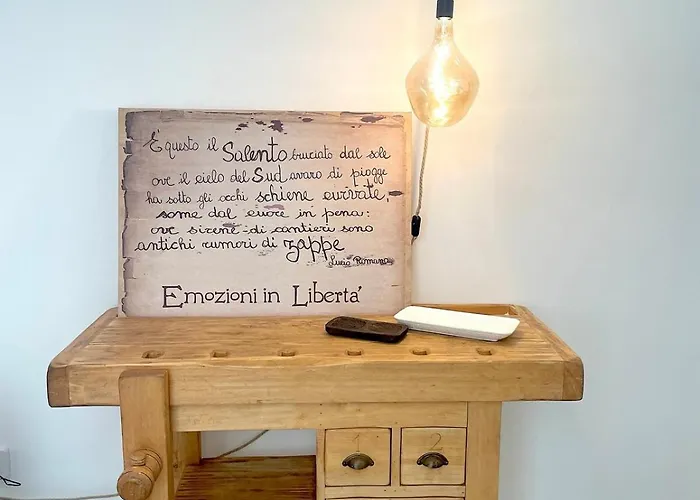 È questo il Salento bruciato dal sole
ove il cielo del Sud avaro di piogge
ha sotto gli occhi schiene curvate,
some dal cuore in pena:
ove sirene di cantieri sono
antichi rumori di zappe
Lucio Romano
Emozioni in Libertà
1 2